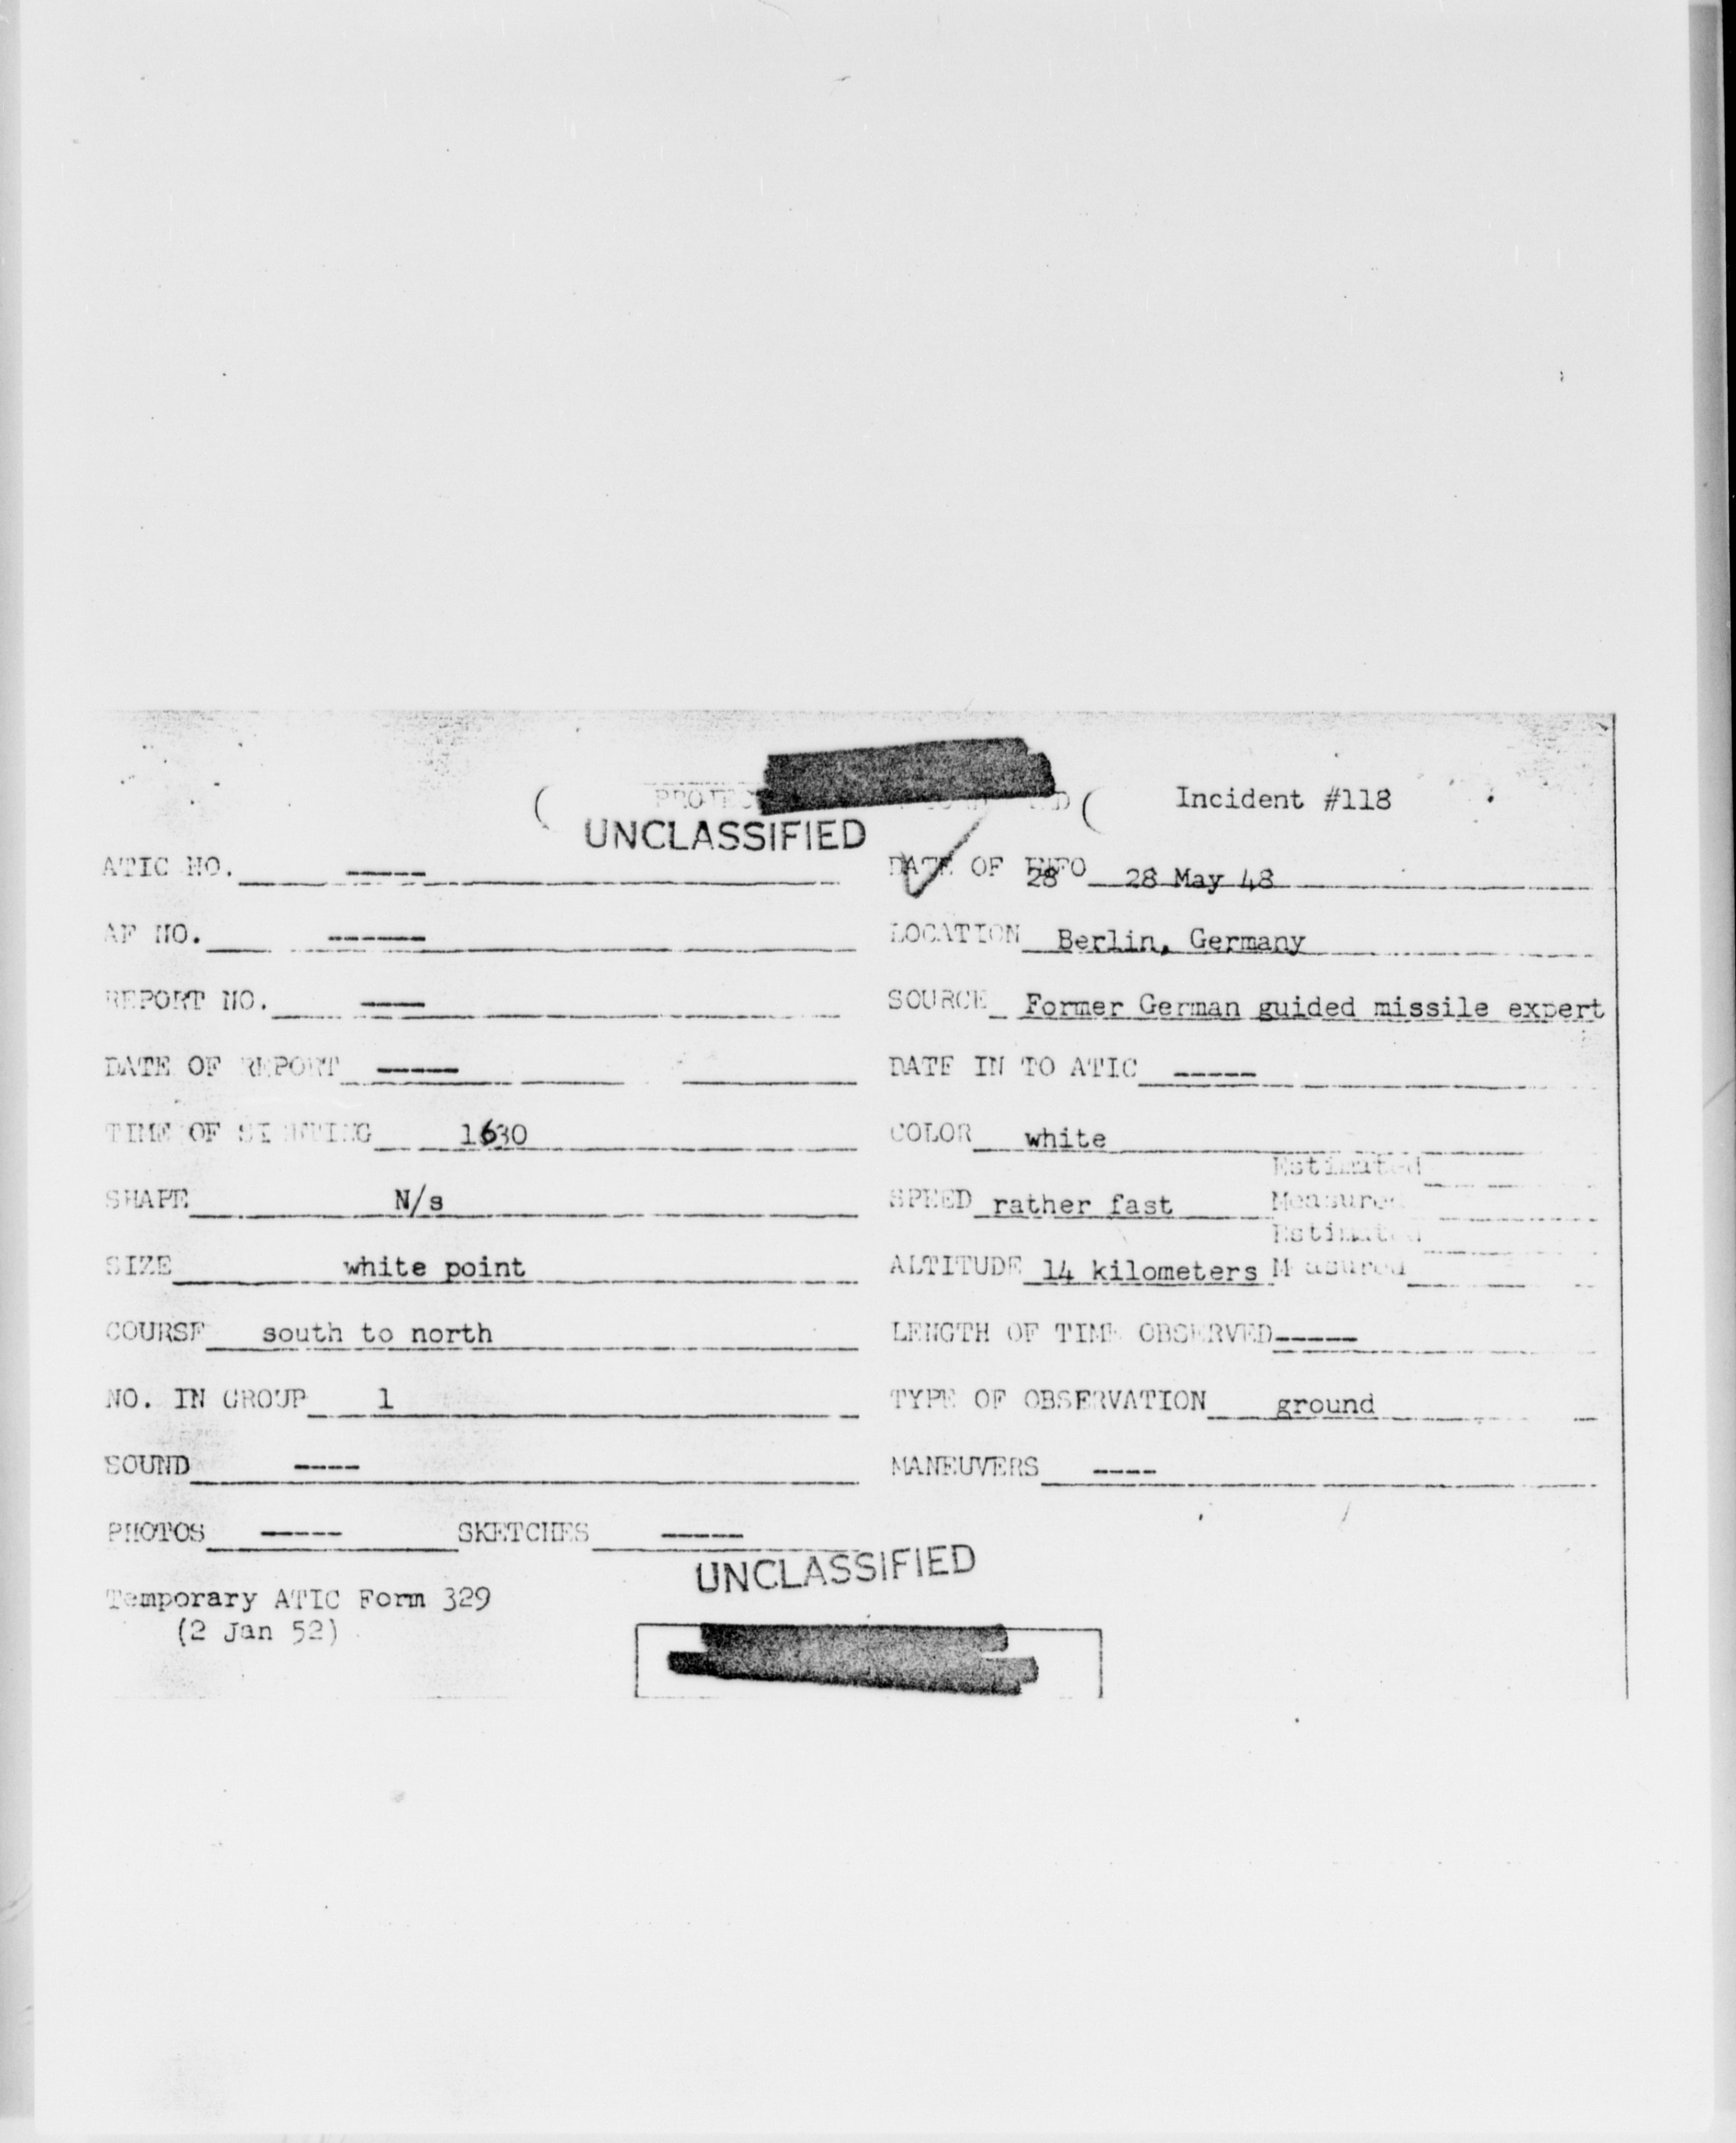 Incident #118
UNCLASSIFIED
ATIC NO. ----- DATE OF INFO 28 28 May 48
AF NO. ------ LOCATION Berlin, Germany
REPORT NO. ---- SOURCE Former German guided missile expert
DATE OF REPORT ----- DATE IN TO ATIC -----
TIME OF SIGHTING 1630 COLOR white
Estimated
SHAPE N/s SPEED rather fast Measured
Estimated
SIZE white point ALTITUDE 14 kilometers Measured
COURSE south to north LENGTH OF TIME OBSERVED -----
NO. IN GROUP 1 TYPE OF OBSERVATION ground
SOUND ---- MANEUVERS ----
PHOTOS ----- SKETCHES -----
UNCLASSIFIED
Temporary ATIC Form 329
(2 Jan 52)